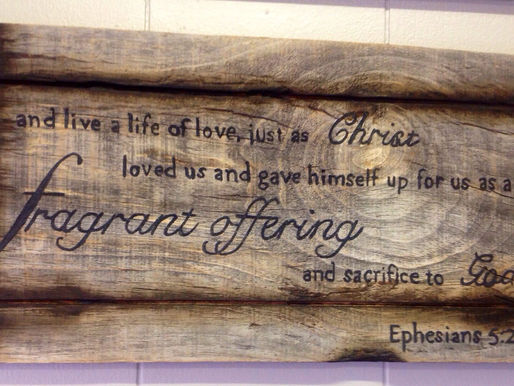 and live a life of love, just as Christ
loved us and gave himself up for us as a
fragrant offering
and sacrifice to God
Ephesians 5:2